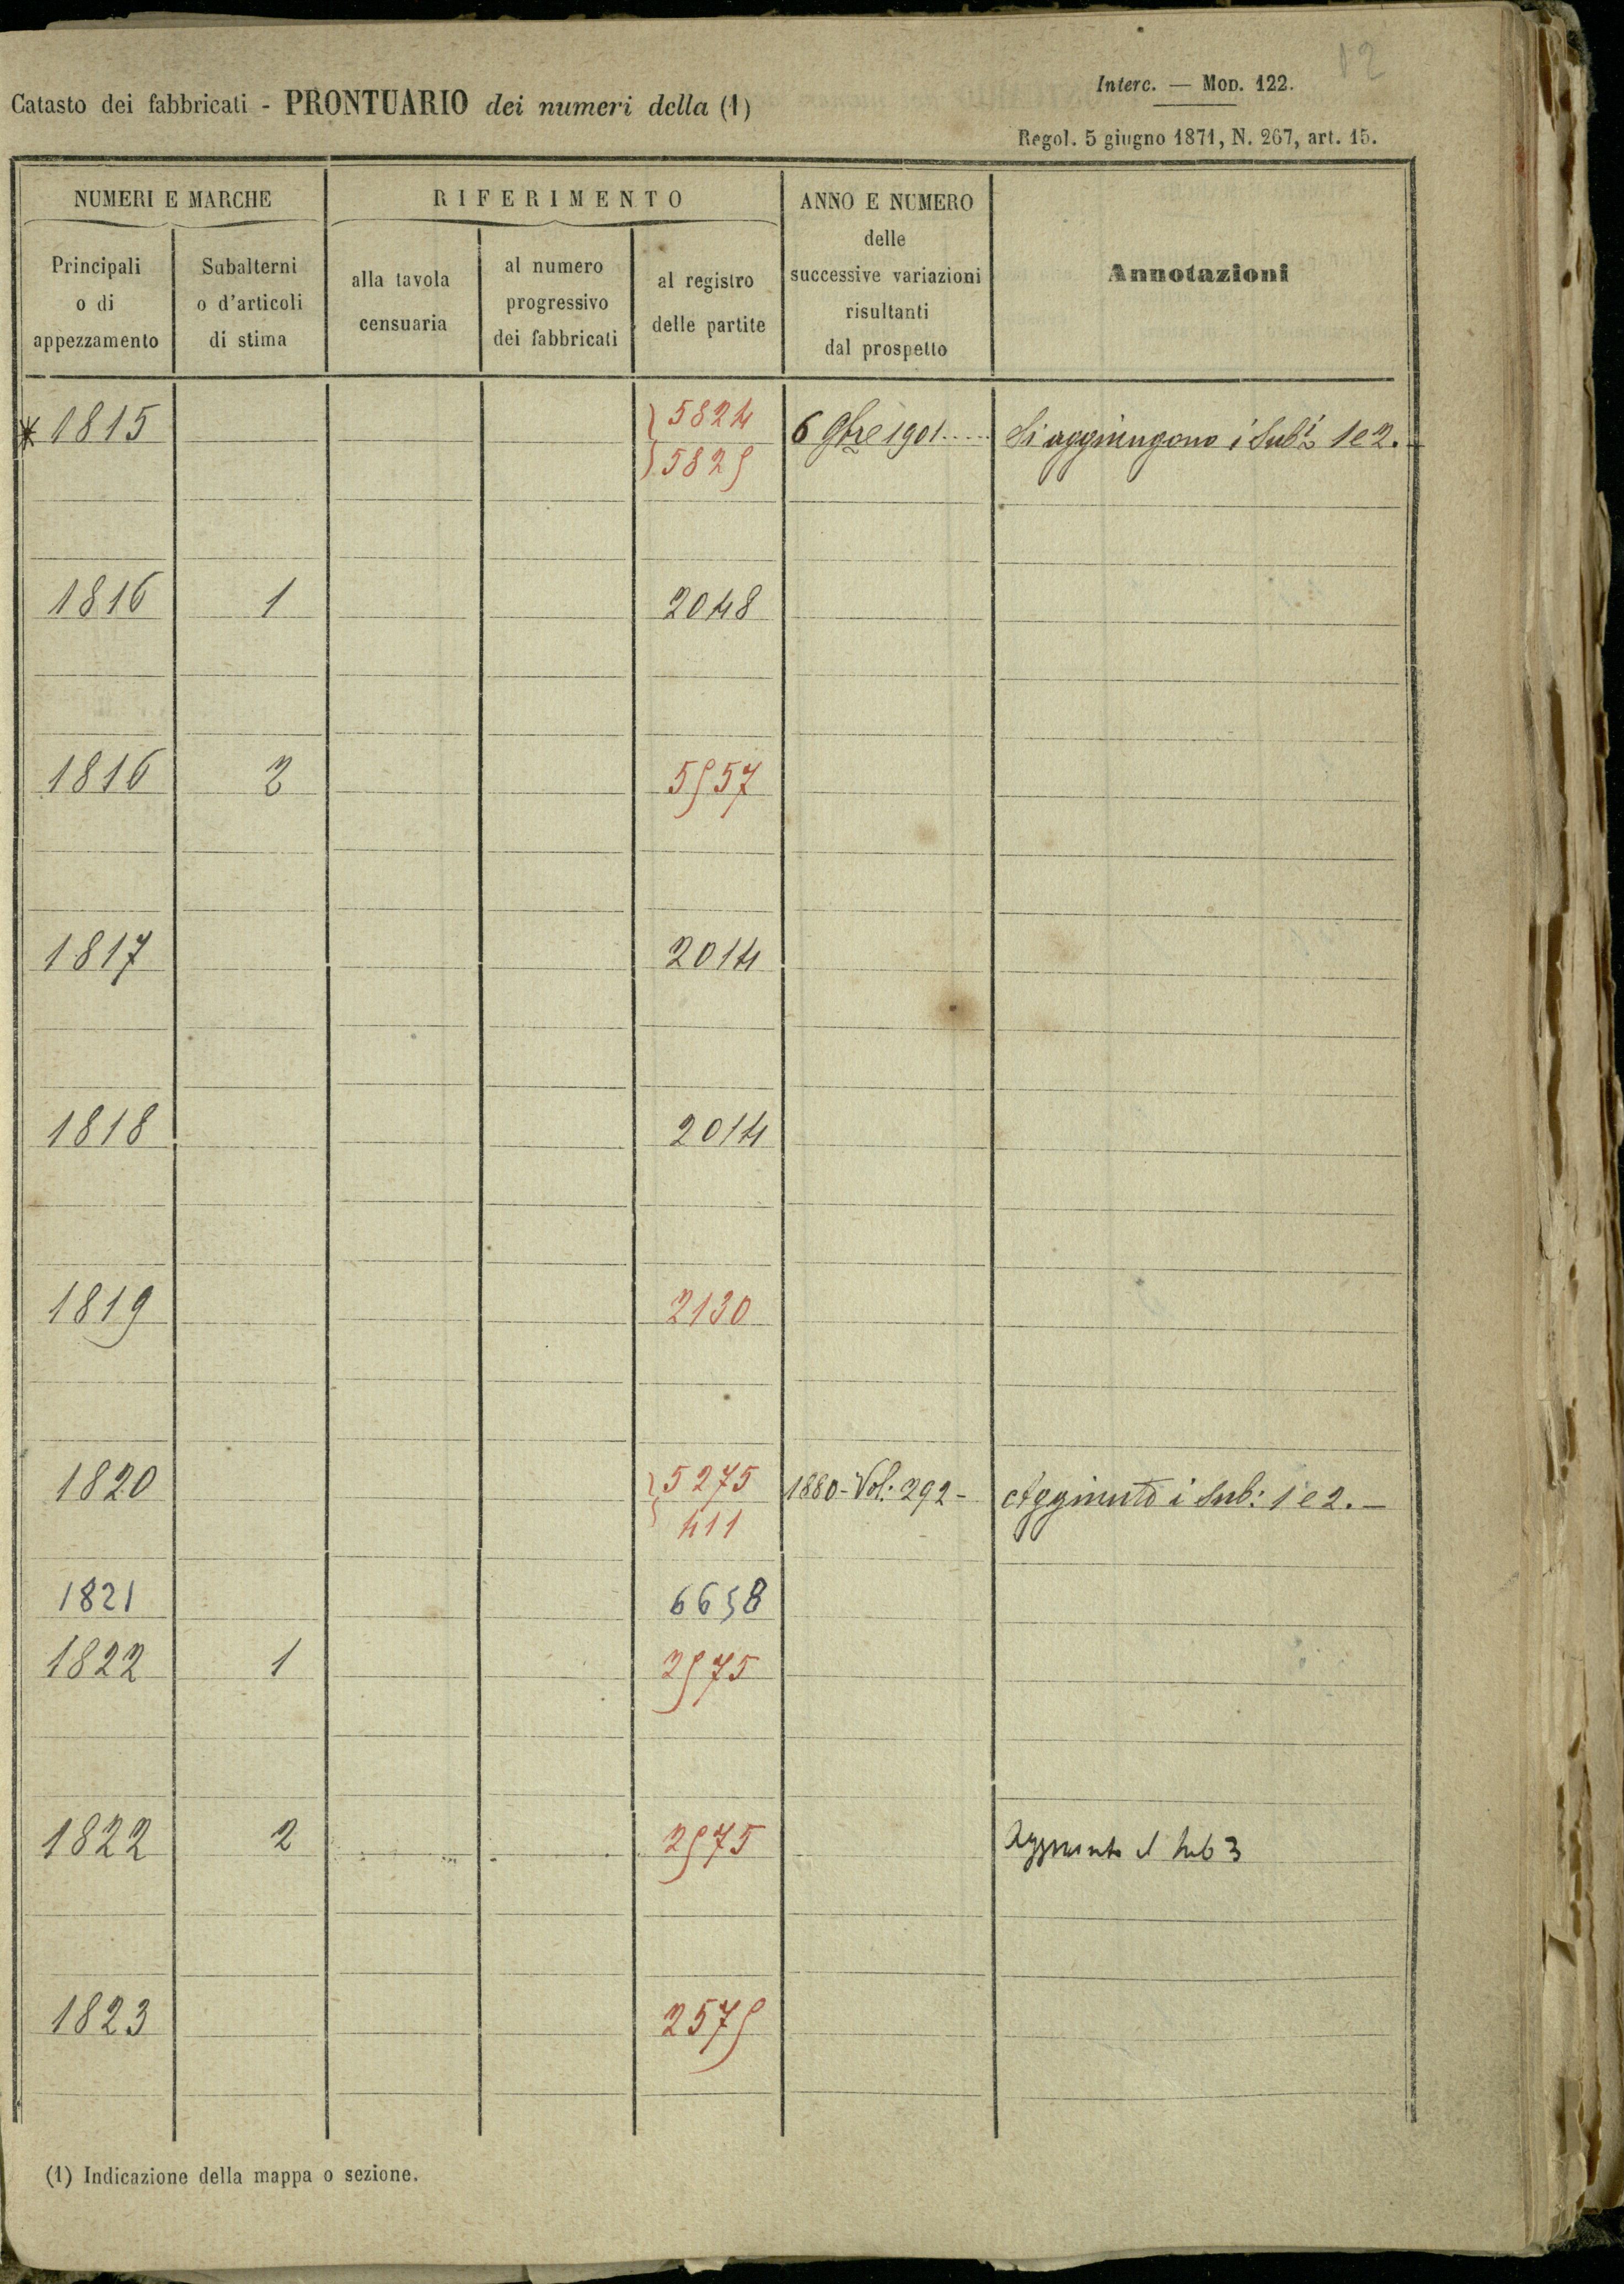 12
Interc. — MOD. 122.
Catasto dei fabbricati - PRONTUARIO dei numeri della (1)
Regol. 5 giugno 1871, N. 267, art. 15.
NUMERI E MARCHE
RIFERIMENTO
ANNO E NUMERO
delle
successive variazioni
risultanti
dal prospetto
Annotazioni
Principali
o di
appezzamento
Subalterni
o d'articoli
di stima
alla tavola
censuaria
al numero
progressivo
dei fabbricati
al registro
delle partite
* 1815 5824 6 9bre 1901..... Si aggiungono i Sub.i 1 e 2. —
5825
1816 1 2048
1816 3 5957
1817 2014
1818 2014
1819 2130
1820 5275 1880 - Vol: 292 - Aggiunto i Sub: 1 e 2. —
411
1821 6658
1822 1 2975
1822 2 2975 Aggiunto il sub 3
1823 2575
(1) Indicazione della mappa o sezione.